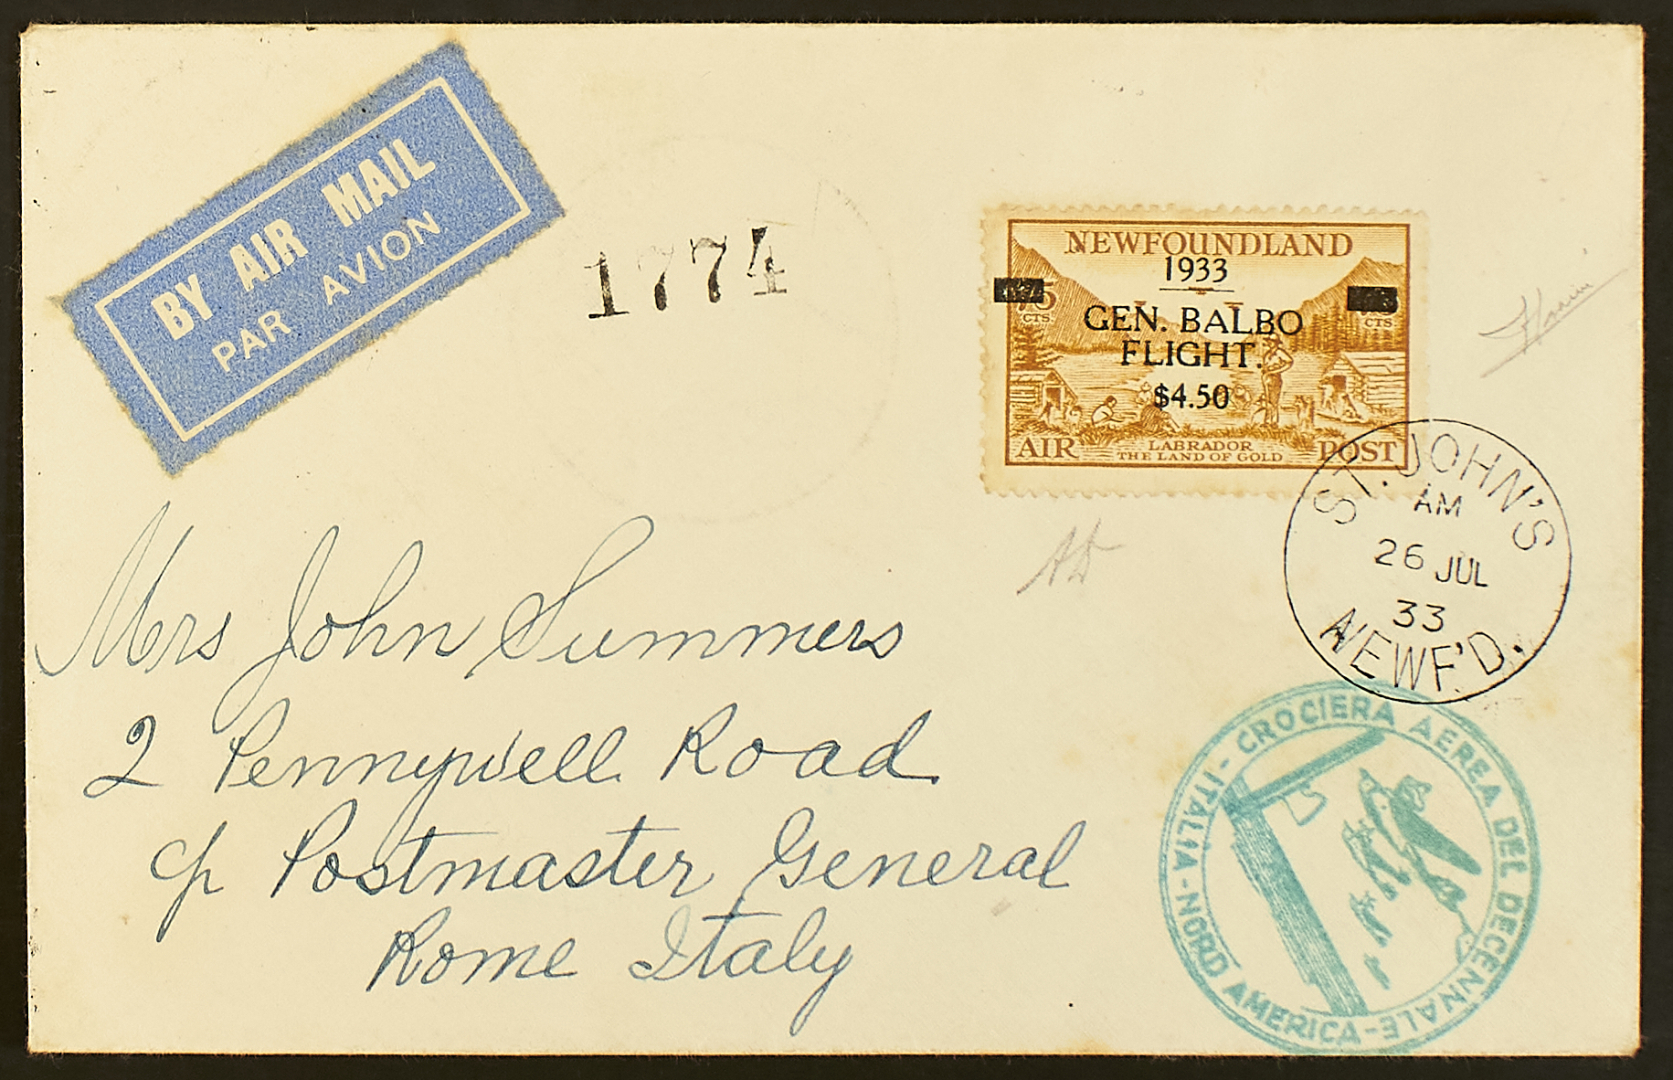 BY AIR MAIL
PAR AVION
1774
NEWFOUNDLAND
1933
75
CTS.
CTS
GEN. BALBO
FLIGHT.
$4.50
AIR POST
LABRADOR
THE LAND OF GOLD
ST. JOHN'S
AM
26 JUL
33
NEWF'D.
Mrs John Summers
2 Pennywell Road
c/o Postmaster General
Rome Italy
CROCIERA AEREA DEL DECENNALE - NORD AMERICA - ITALIA -